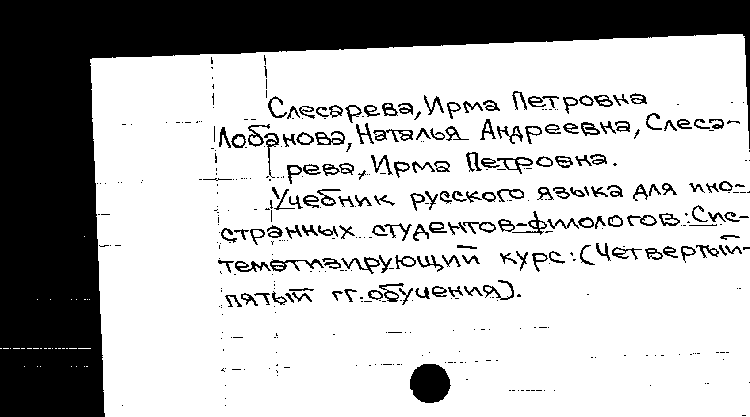 Слесарева, Ирма Петровна
Лобанова, Наталья Андреевна, Слеса-
рева, Ирма Петровна.
Учебник русского языка для ино-
странных студентов-филологов: Сис-
тематизирующий курс: (Четвертый-
пятый гг. обучения).